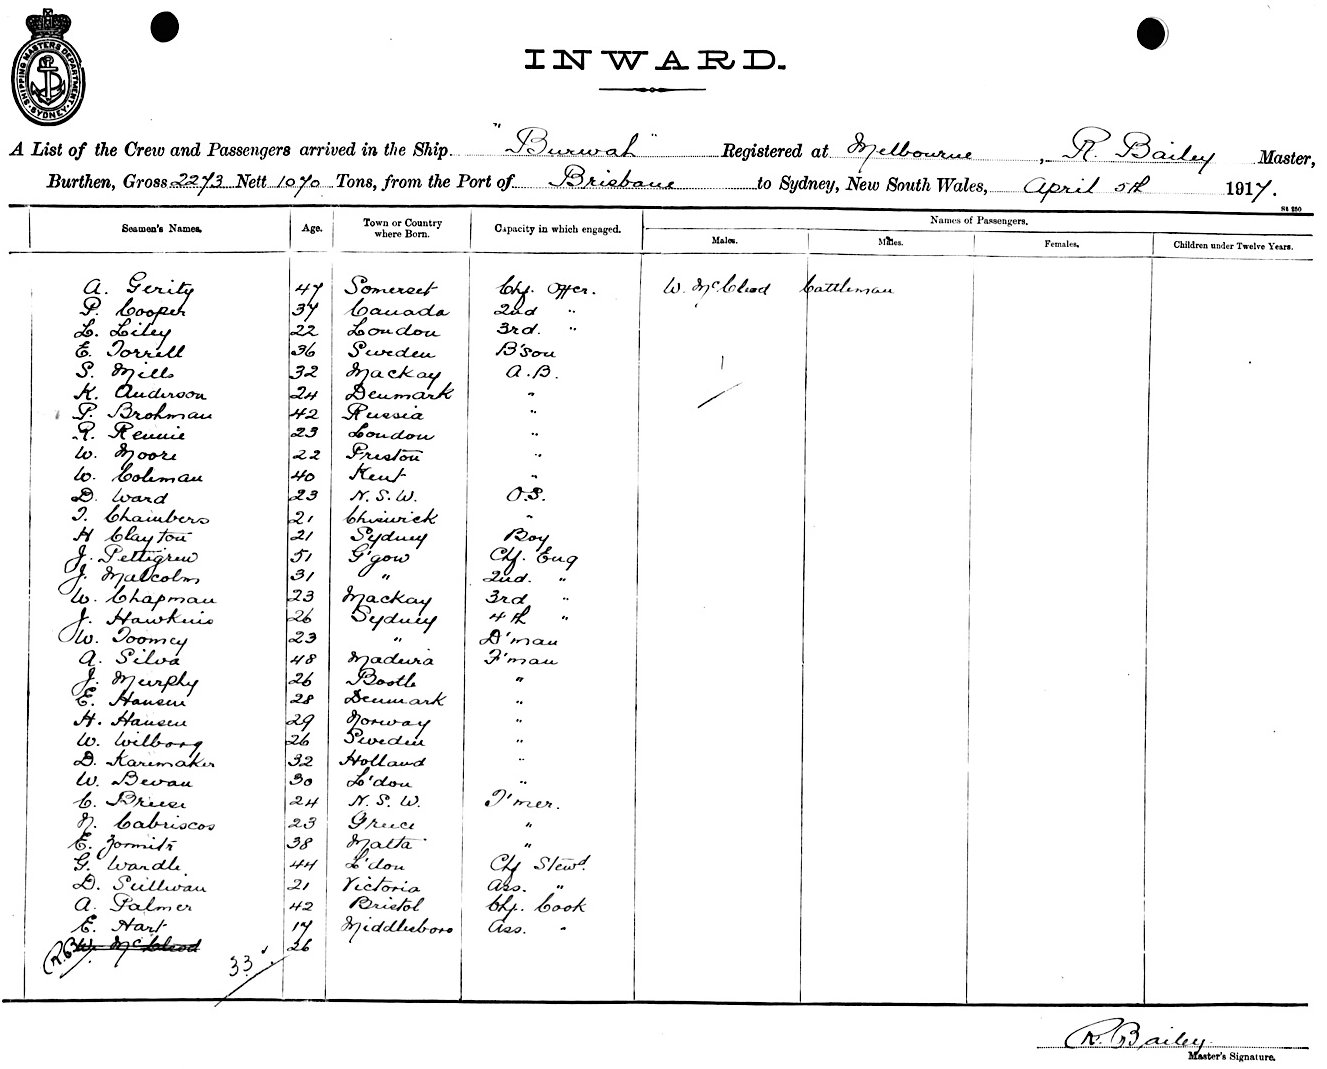 SHIPPING MASTERS DEPARTMENT SYDNEY
INWARD.
A List of the Crew and Passengers arrived in the Ship "Burwah" Registered at Melbourne, R. Bailey Master,
Burthen, Gross 2273 Nett 1070 Tons, from the Port of Brisbane to Sydney, New South Wales, April 5th 1917.
Seamen's Names. Age. Town or Country where Born. Capacity in which engaged. Names of Passengers.
Males. Males. Females. Children under Twelve Years.
A. Gerity 47 Somerset Chf. Offer. W. McCleod Cattleman
P. Cooper 37 Canada 2nd "
L. Liley 22 London 3rd. "
E. Torrell 36 Sweden B'son
S. Mills 32 Mackay A.B.
K. Anderson 24 Denmark "
P. Brohman 42 Russia "
R. Rennie 23 London "
W. Moore 22 Preston "
W. Coleman 40 Kent "
D. Ward 23 N.S.W. O.S.
T. Chambers 21 Chiswick "
H Clayton 21 Sydney Boy
J. Pettigrew 51 G'gow Chf. Eng
J. Malcolm 31 " 2nd. "
W. Chapman 23 Mackay 3rd "
J. Hawkins 26 Sydney 4th "
W. Toomey 23 " D'man
A. Silva 48 Madeira F'man
J. Murphy 26 Bootle "
E. Hansen 28 Denmark "
H. Hansen 29 Norway "
W. Wilborg 26 Sweden "
D. Karemaker 32 Holland "
W. Bevan 30 L'don "
C. Breese 24 N.S.W. T'mer.
N. Cabriscos 23 Greece "
E. Zormitz 38 Malta "
G. Wardle 44 L'don Chf Stewd.
D. Sullivan 21 Victoria Ass. "
A. Palmer 42 Bristol Chf. Cook
E. Hart 17 Middlesboro Ass. "
R.B. W. McCleod 26
33
R. Bailey
Master's Signature.